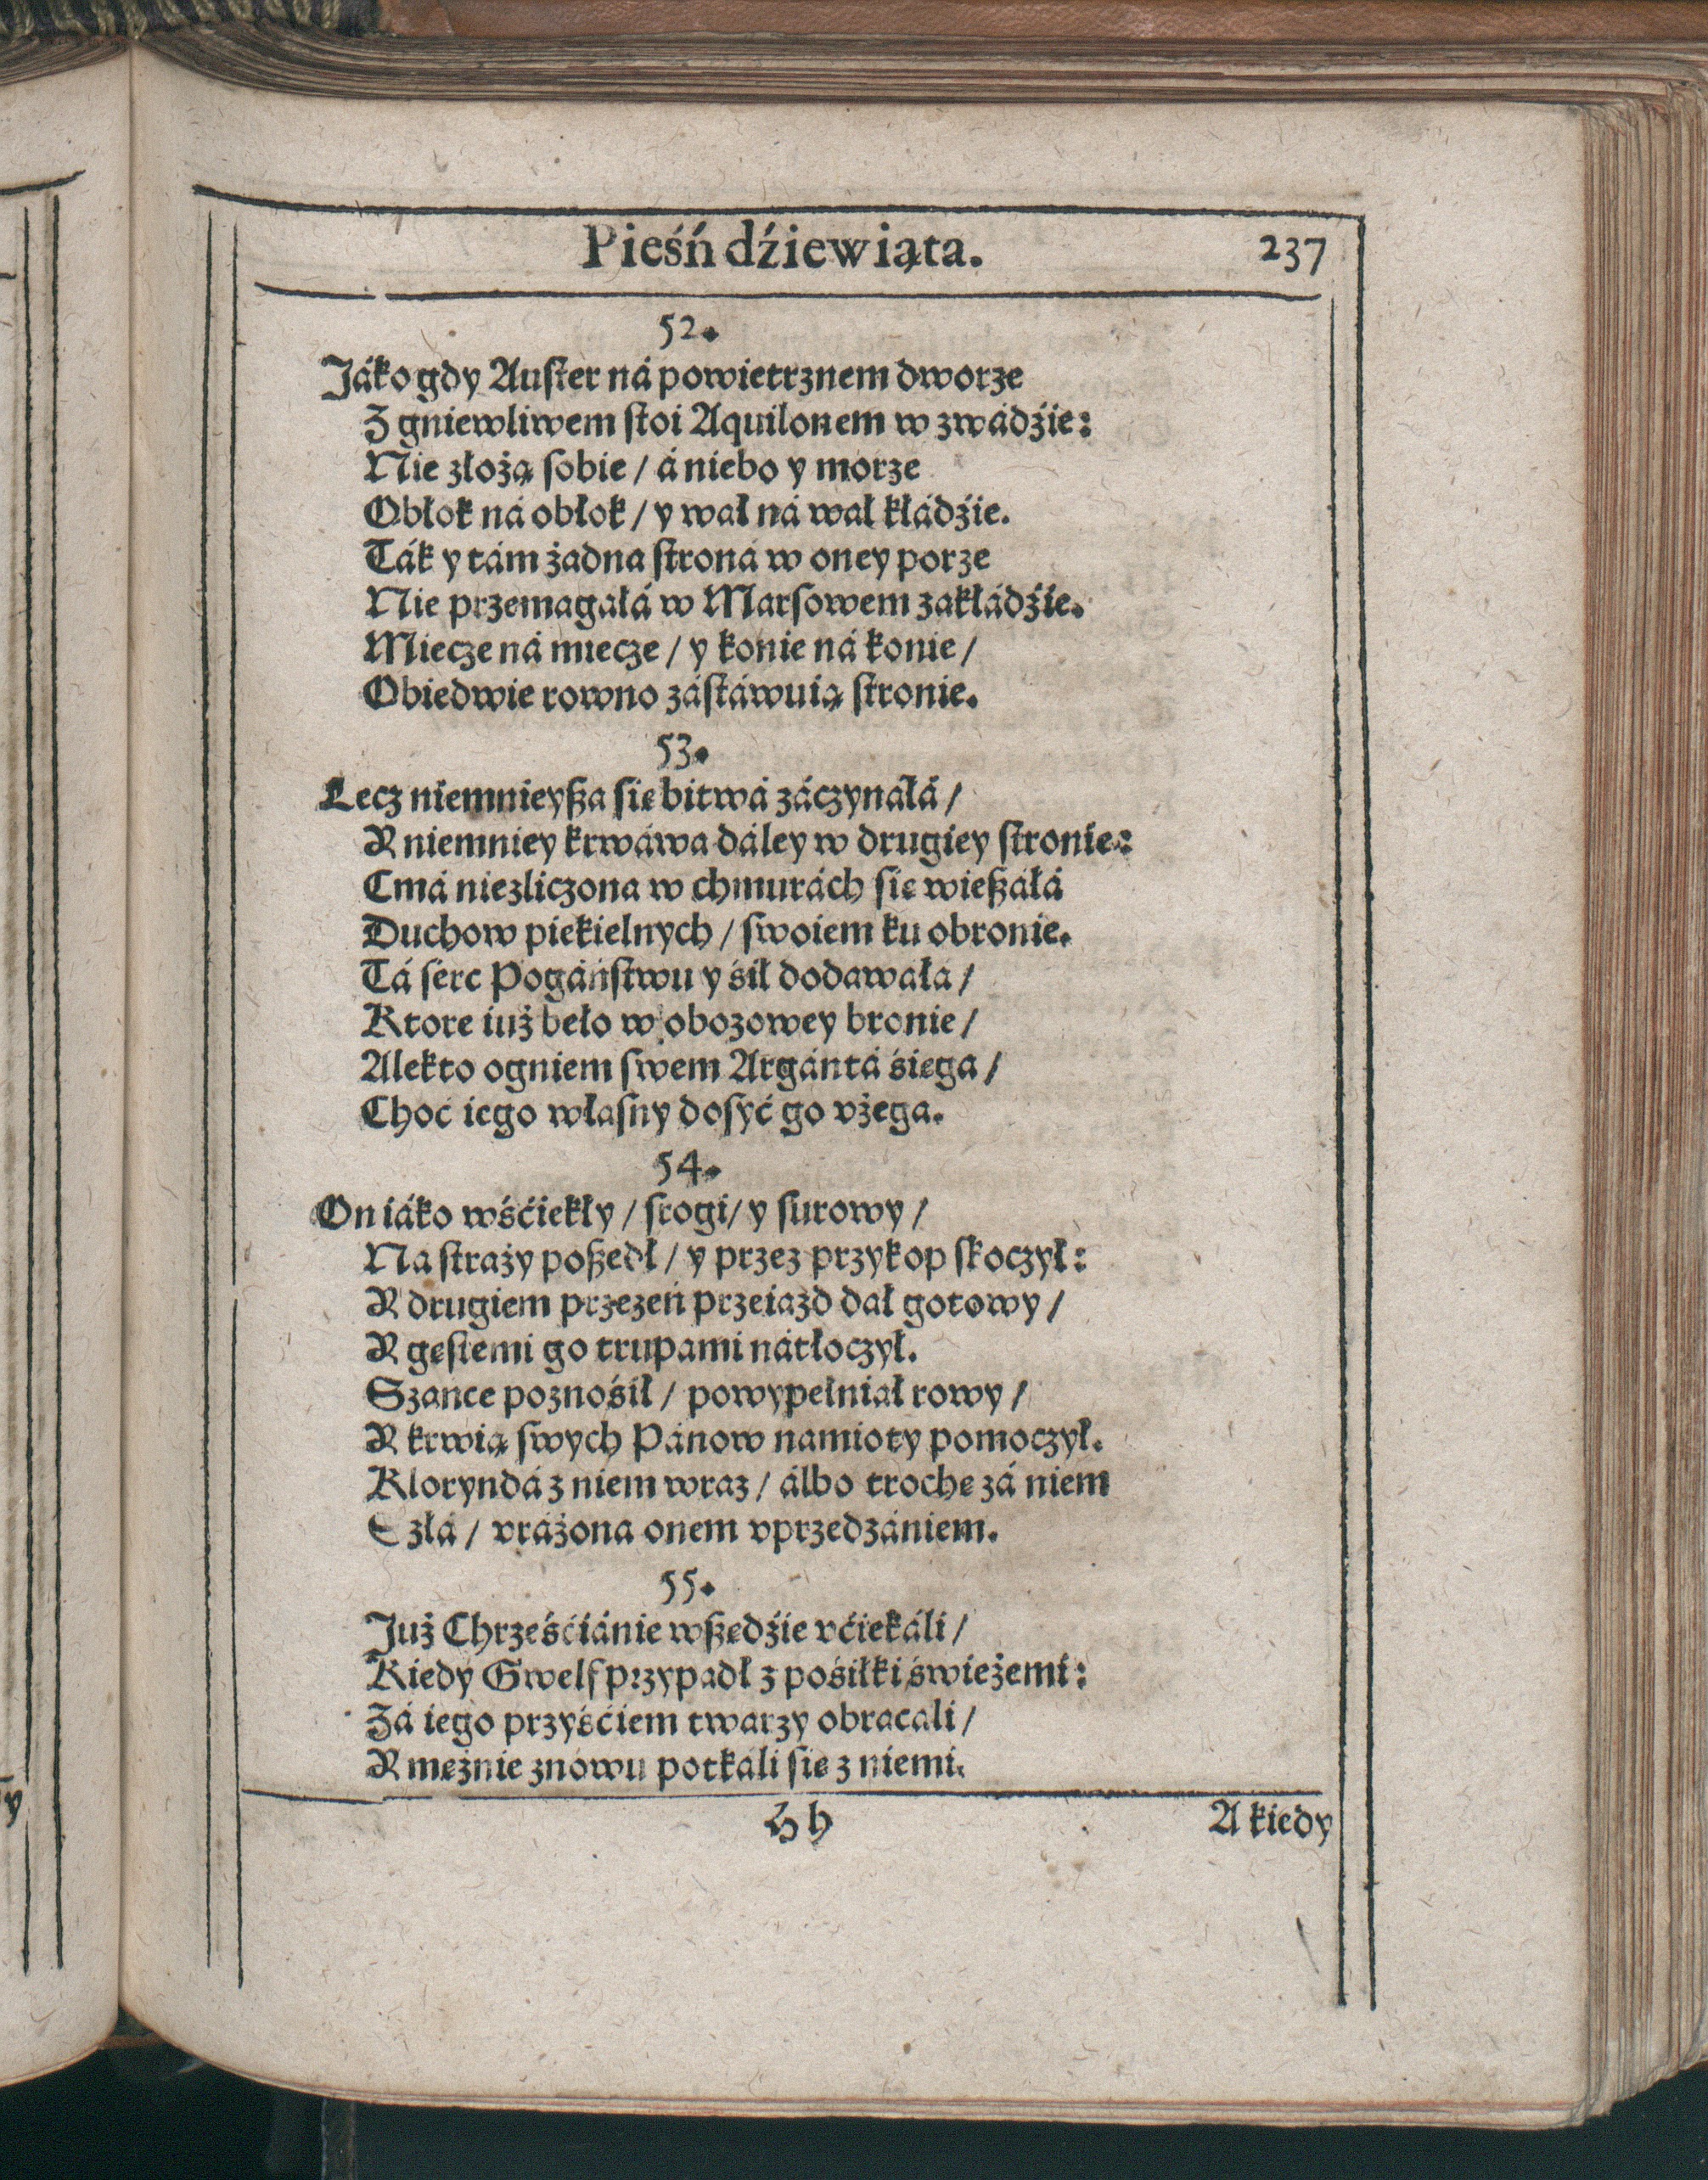 Pieśń dźiewiąta. 237
52.
Jáko gdy Auſter ná powietrznem dworze
Z gniewliwem ſtoi Aquilonem w zwádźie:
Nie złożą ſobie / á niebo y morze
Obłok ná obłok / y wał ná wał kłádźie.
Ták y tám żadna ſtroná w oney porze
Nie przemagáłá w Marſowem zakłádźie.
Miecze ná miecze / y konie ná konie /
Obiedwie rowno záſtáwuią ſtronie.
53.
Lecz niemnieyßa ſię bitwá záczynáłá /
Y niemniey krwáwa dáley w drugiey ſtronie:
Cmá niezliczona w chmurách ſię wießáłá
Duchow piekielnych / ſwoiem ku obronie.
Tá ſerc Pogáńſtwu y śił dodawáłá /
Ktore iuż beło w obozowey bronie /
Alekto ogniem ſwem Argántá śięga /
Choć iego właſny doſyć go vżega.
54.
On iáko wśćiekły / ſrogi / y ſurowy /
Na ſtraży poßedł / y przez przykop ſkoczył:
Y drugiem przezeń przeiazd dał gotowy /
Y gęſtemi go trupami nátłoczył.
Szance poznośił / powypełniał rowy /
Y krwią ſwych Pánow namioty pomoczył.
Kloryndá z niem wraz / álbo trochę zá niem
Szłá / vráżona onem vprzedzániem.
55.
Już Chrześćiánie wßędźie vćiekáli /
Kiedy Gwelf przypadł z pośiłki świeżemi:
Zá iego przyśćiem twarzy obracali /
Y mężnie znowu potkáli ſię z niemi.
Hh A kiedy
y